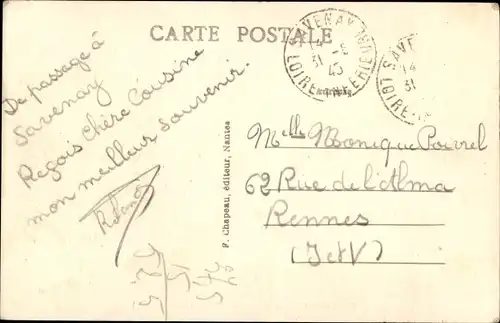 CARTE POSTALE
SAVENAY
14
31
-5
45
LOIRE-INFERIEURE
SAVE
14
31
LOIRE
De passage à
Savenay
Reçois chère Cousine
mon meilleur souvenir.
F. Chapeau, éditeur, Nantes
Melle Monique
62 Rue de l'Alma
Rennes
(I et V)